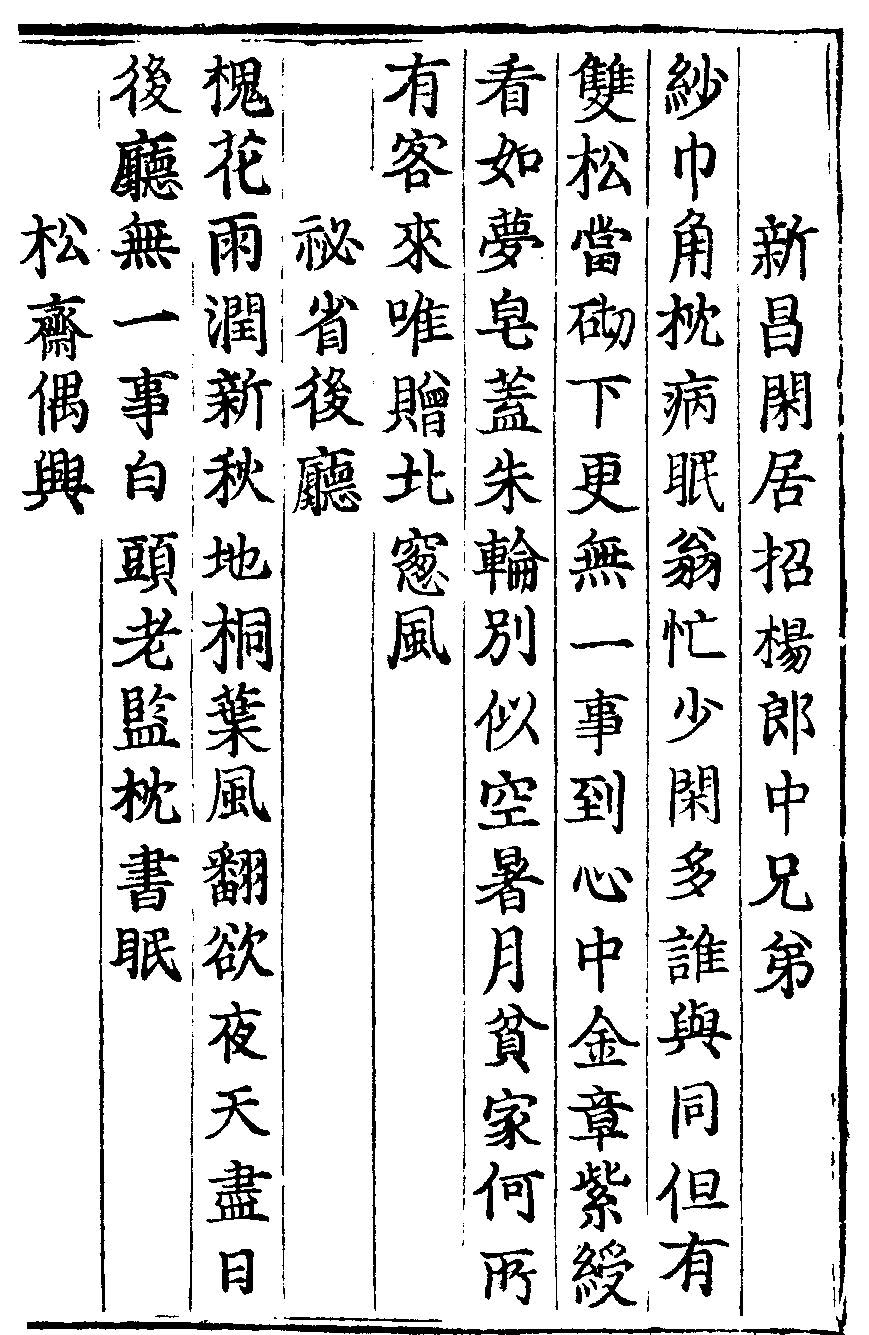 新昌閑居招楊郎中兄弟
紗巾角枕病眠翁忙少閑多誰與同但有
雙松當砌下更無一事到心中金章紫綬
看如夢皂蓋朱輪別似空暑月貧家何所
有客來唯贈北窻風
祕省後廳
槐花雨潤新秋地桐葉風翻欲夜天盡日
後廳無一事白頭老監枕書眠
松齋偶興